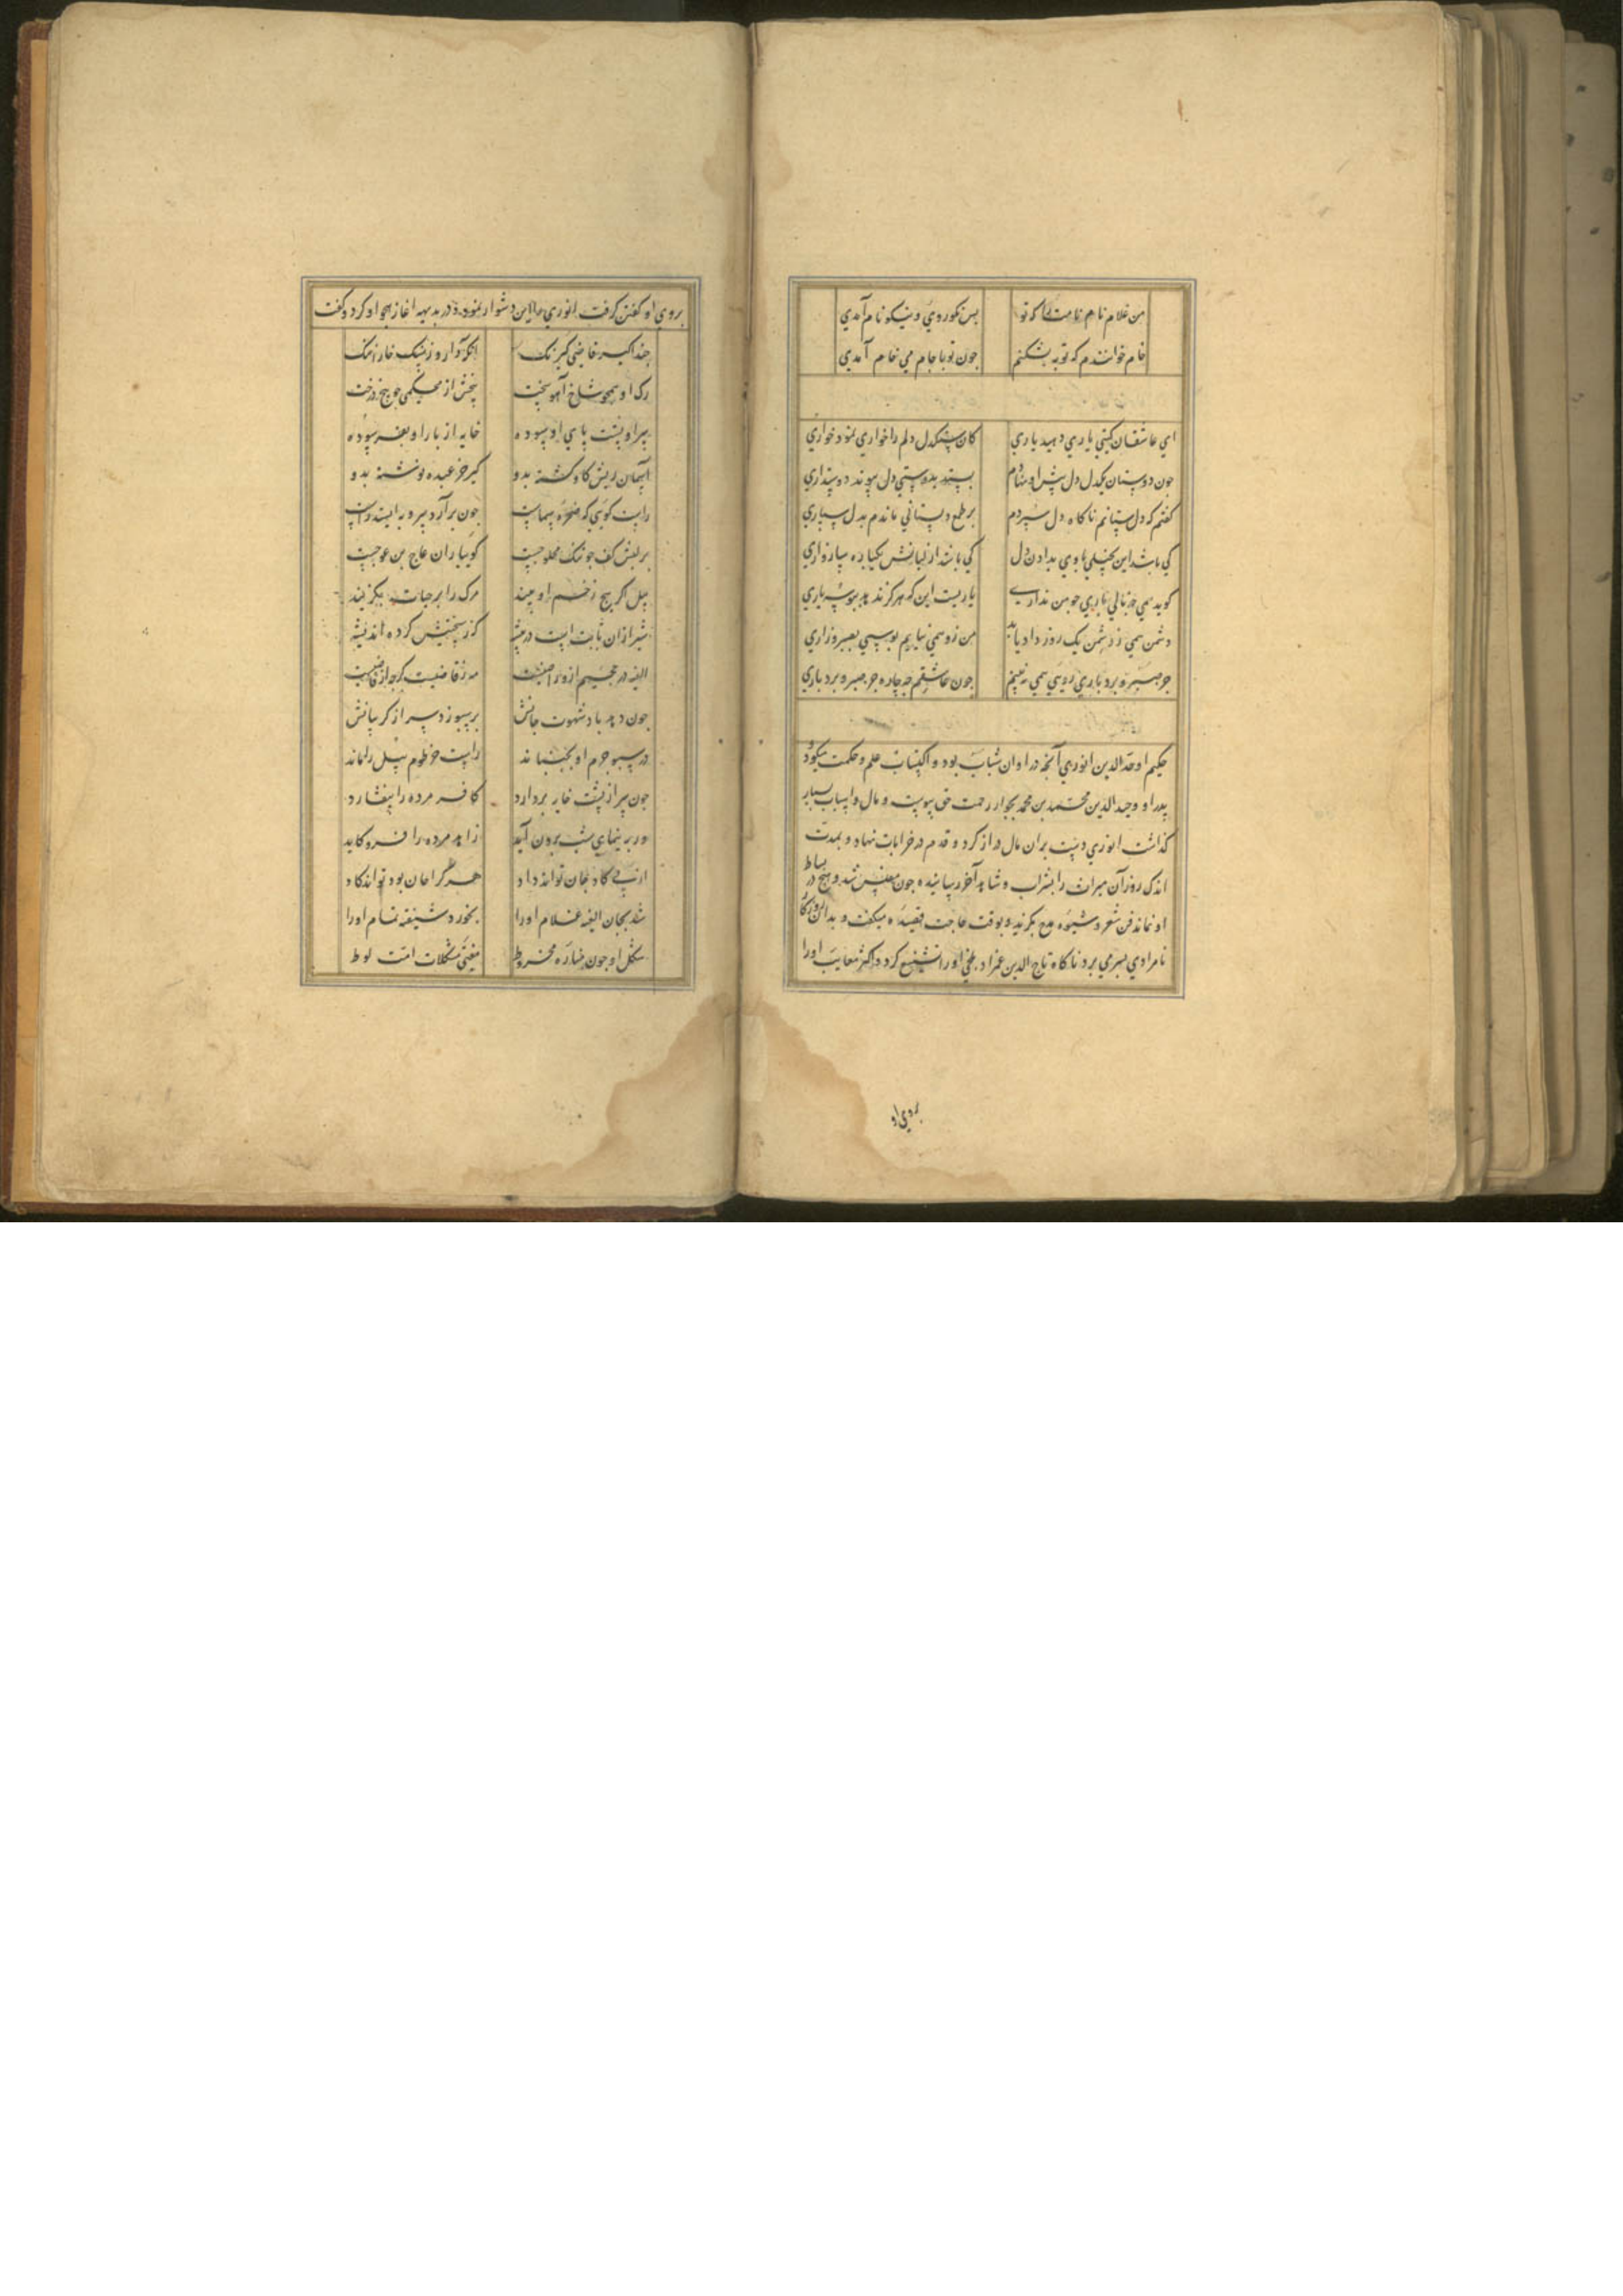 من غلام نام نامت را که تو بس نکوروی و نیکو نام آمدی
خام خوانندم که توبه بشکنم چون تو با جام می خام آمدی
ای عاشقان کیتی یاری دهید یاری کان سنکدل دلم را خواری نمود خواری
چون دوستان یکدل دل پیش او نهادم بستد بدوستی دل نمود دوستداری
کفتم که دل ستانم ناکاه دل سپردم بر طمع دلستانی ماندم بدل سپاری
کی باشد این بخیلی با وی بدادن دل کی باشد از لبانش یکباره سازواری
کوید همی چه نالی یاری چو من نداری یاریست این که هرکز ندهد ببوسه یاری
دشمن همی ز دشمن یک روز داد یابد من زو همی نیابم بوسی بصبر و زاری
جز صبر و بردباری رویی همی نبینم چون عاشقم چه چاره جز صبر و بردباری
حکیم اوحد الدین انوری آنچه در اوان شباب بود و اکتساب علم و حکمت میکرد
پدر او وحید الدین محمد بن محمد بجوار رحمت حق پیوست و مال و اسباب بسیار
کذاشت انوری دست بران مال دراز کرد و قدم در خرابات نهاد و بمدت
اندک روز آن میراث را بشراب و شاهد آخر رسانیده چون مفلس شد و هیچ در بساط
او نماند فن شعر و شیوه مدح بکزید و بوقت حاجت قصیده میکفت و بدان روزکار
نامرادی بسر می برد ناکاه تاج الدین عمزاد بلخی او را تشنیع کرد و اکثر معایب او را
بروی او
بروی او کفتن کرفت انوری را این دشوار نمود و در بدیهه اغاز هجو او کرد و کفت
حبذا کیر قاضی کیرنک آنکه دارد ز سنک خارا ننک
رک او همچو شاخ آهو سخت بیخش از محکمی چو بیخ درخت
سر او پشت پای او سوده خایه از بار او بفرسوده
آسمان ریش کاو کشته بدو کیر خر عبده نوشته بدو
راست کویی که صخره صماست چون برآرد سر و بایستد راست
بر لبش کف چو پنبه محلوجست کوییا ران عاج بن عوجست
پیل اکر هیچ زخم او بیند مرک را بر حیات بکزیند
شیر ازان ثابت است در بیشه کز سختیش کرده اندیشه
چون دهد باد شهوت جانش بر سپوزد سر از کریبانش
در سبوچرم او بجنباند راست خرطوم پیل را ماند
چون سر از پشت خایه بردارد کافر مرده را بیفشارد
ور برینهای شب برون آید زاهد مرده را فرو کاید
از پی کاد جان تواند داد هر کرا جان بود تواند کاد
شد بجان الفیه غلام او را بخورد شلفیه تمام او را
شکل او چون مناره مخروط مفتی مشکلات امت لوط